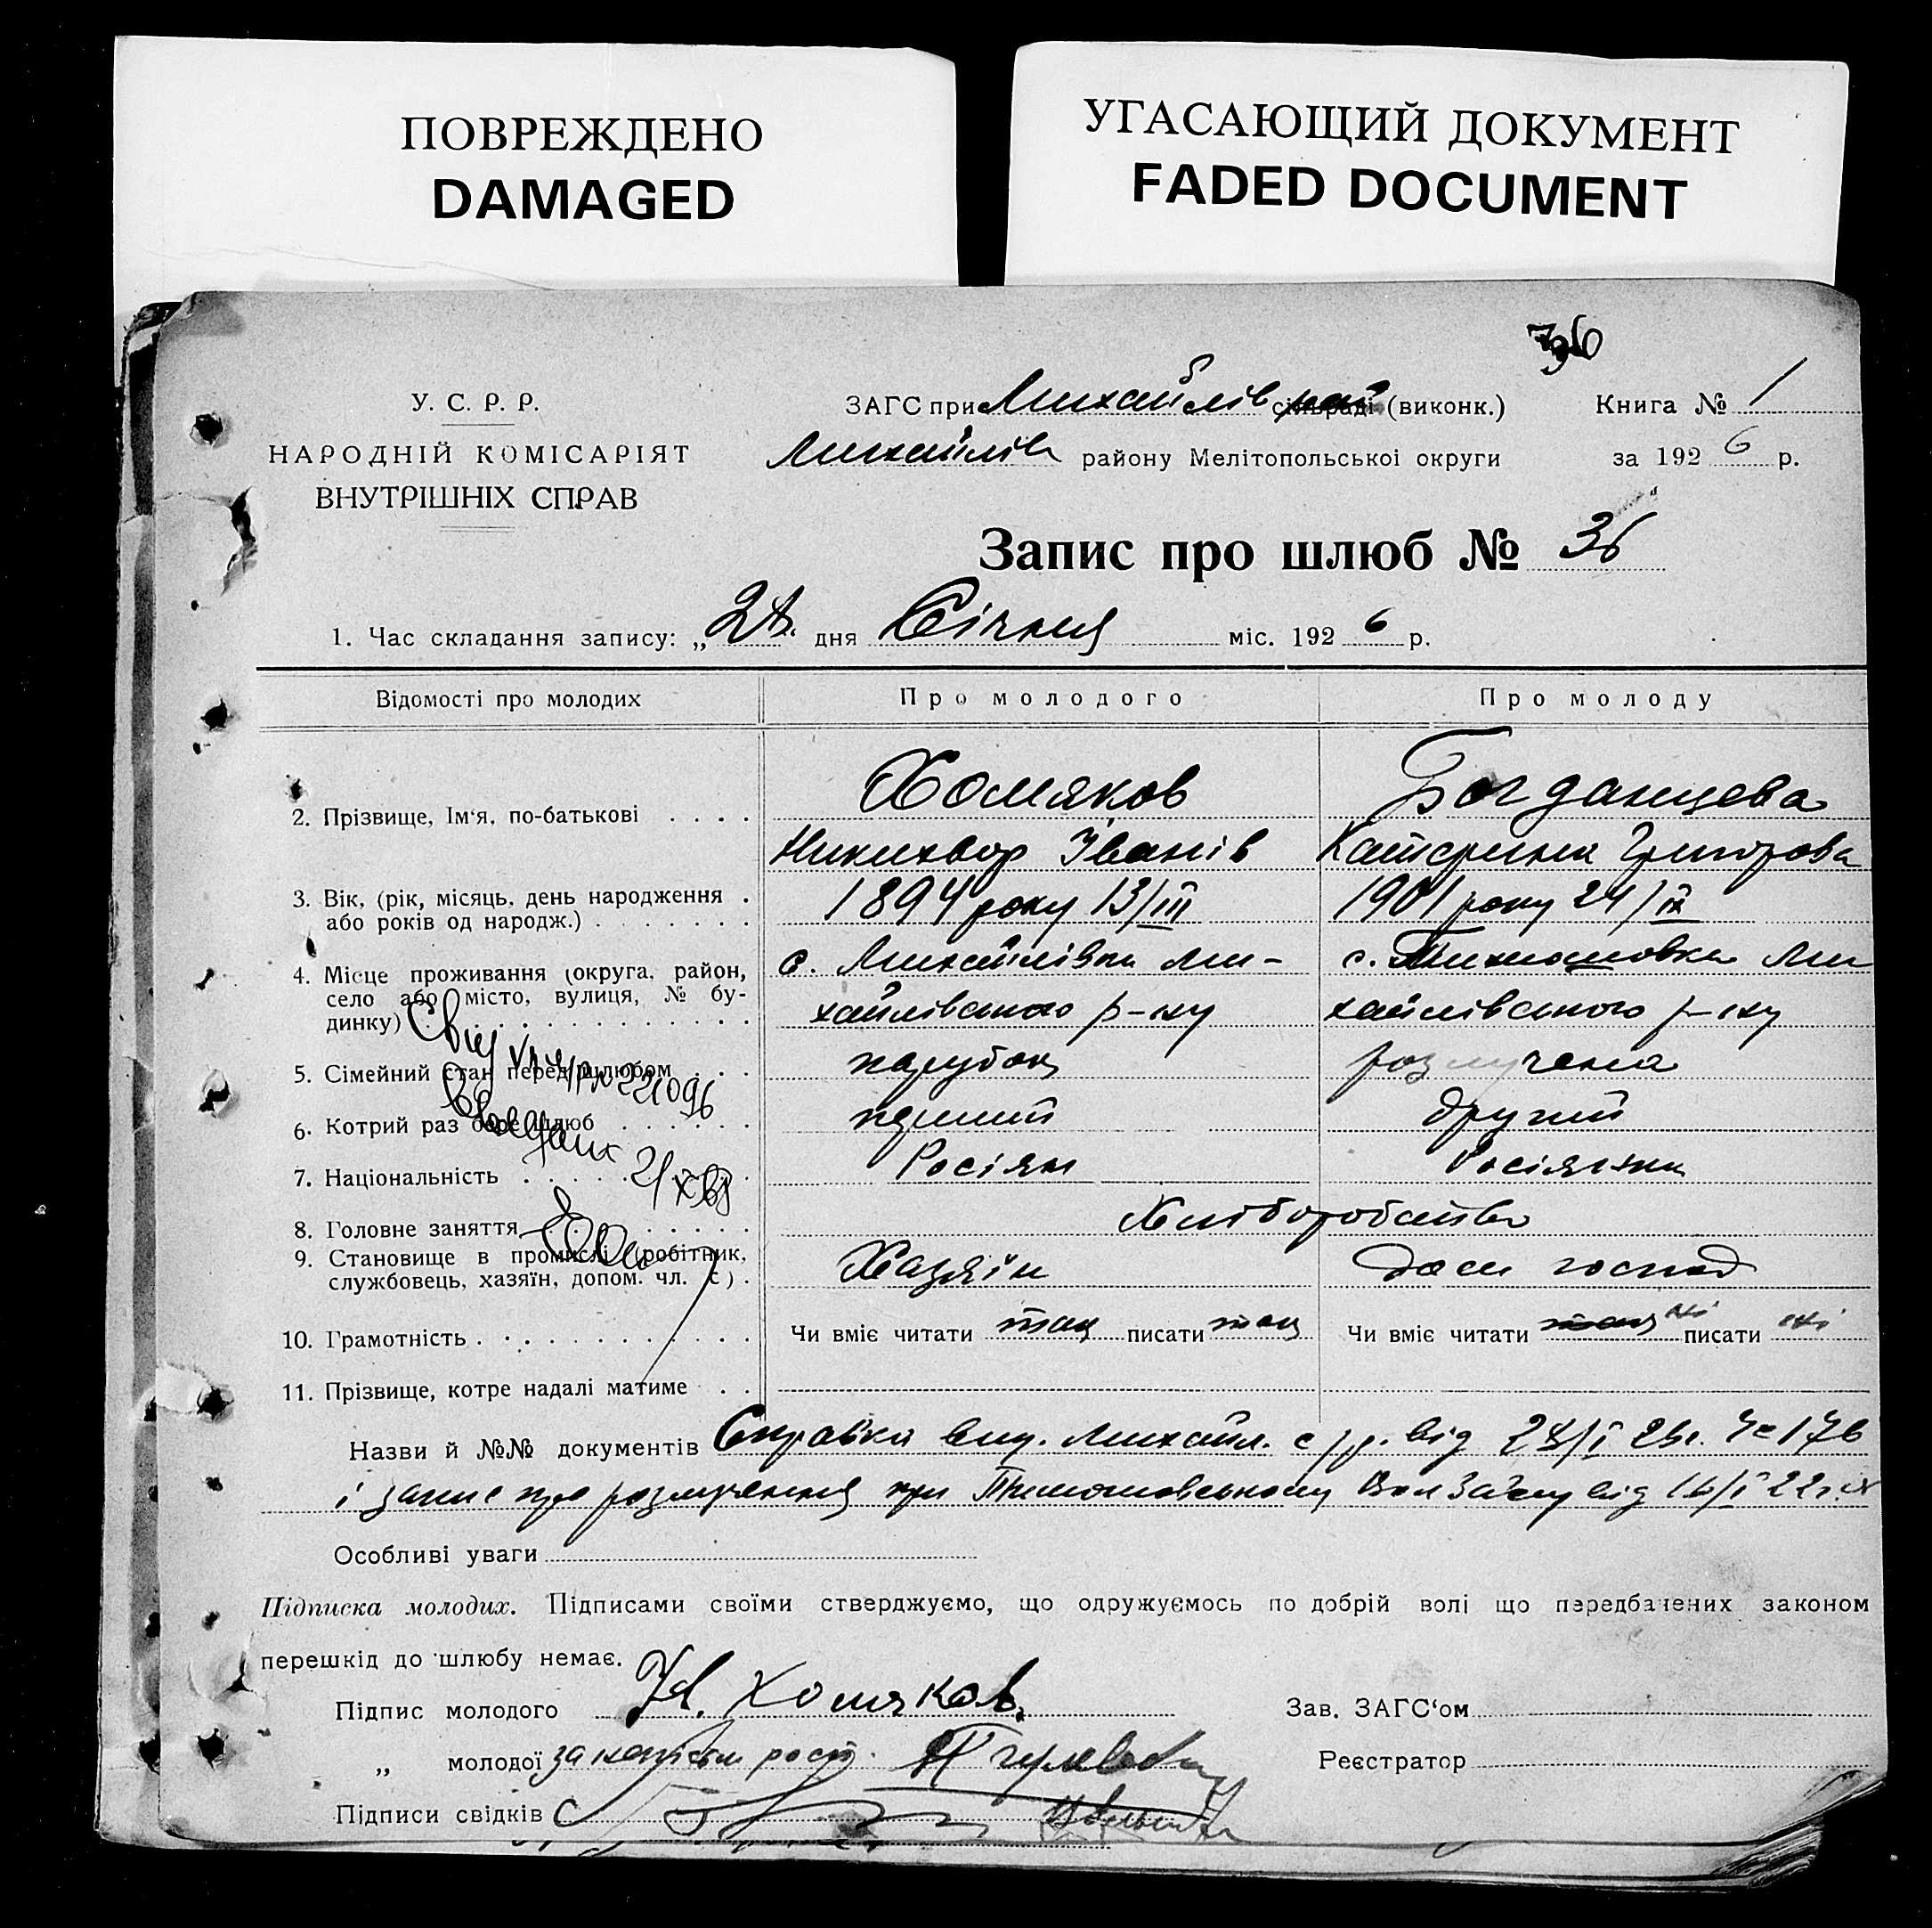 ПОВРЕЖДЕНО
DAMAGED
УГАСАЮЩИЙ ДОКУМЕНТ
FADED DOCUMENT
36
У. С. Р. Р.
НАРОДНІЙ КОМІСАРІЯТ
ВНУТРІШНІХ СПРАВ
ЗАГС при Михайлів сільраді (виконк.)
Михайлів району Мелітопольської округи
Книга № 1
за 1926 р.
Запис про шлюб № 36
1. Час складання запису: „ дня Січня міс. 1926 р.
Відомості про молодих
Про молодого
Про молоду
2. Прізвище, Ім'я, по-батькові . . . .
Хомяков
Богданцева
Никихвор Іванів
Катерина Григорова
3. Вік, (рік, місяць, день народження .
або років од народж.) . . . . . . .
1894 року 13/III
1901 року 24/IX
4. Місце проживання (округа, район,
село або місто, вулиця, № бу-
динку)
с. Михайлівка Ми-
хайлівського р-ну
с. Тимошовка Ми
хайлівського р-ну
5. Сімейний стан перед шлюбом . . .
парубок
розлучена
6. Котрий раз бере шлюб . . . . . .
перший
другий
7. Національність
Росіян
Росіянка
8. Головне заняття
Хліборобство
9. Становище в промислі (робітник,
службовець, хазяїн, допом. чл. с) .
Хазяїн
дом господ
10. Грамотність
Чи вміє читати так писати так
Чи вміє читати ні писати ні
11. Прізвище, котре надалі матиме . .
Назви й №№ документів Справка вид. Михайл. с/р. від 28/I 26г. № 176
і запис про розлучення при Тимошовському від
Особливі уваги
Підписка молодих. Підписами своїми стверджуємо, що одружуємось по добрій волі що передбачених законом
перешкід до шлюбу немає.
Підпис молодого Н. Хомяков.
„ молодої за
Підписи свідків
Зав. ЗАГС'ом
Реєстратор